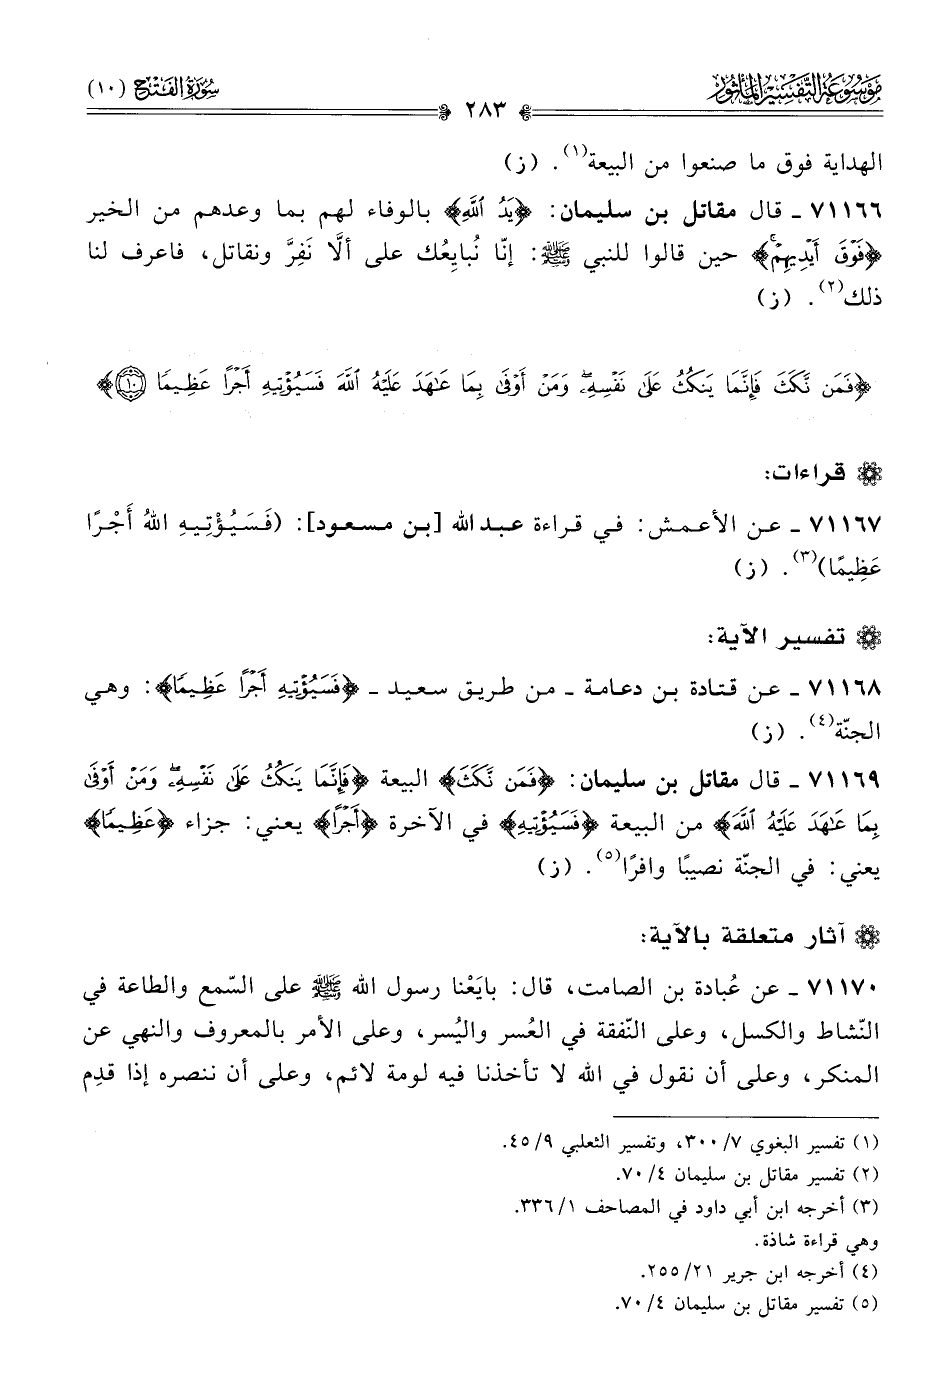 موسوعة التفسير المأثور
سورة الفتح (١٠)
٢٨٣
الهداية فوق ما صنعوا من البيعة(١). (ز)
٧١١٦٦ ـ قال مقاتل بن سليمان: ﴿يَدُ ٱللَّهِ﴾ بالوفاء لهم بما وعدهم من الخير
﴿فَوۡقَ أَيۡدِيهِمۡۚ﴾ حين قالوا للنبي ﷺ: إنّا نُبايِعُك على ألَّا نَفِرَّ ونقاتل، فاعرف لنا
ذلك(٢). (ز)
﴿فَمَن نَّكَثَ فَإِنَّمَا يَنكُثُ عَلَىٰ نَفۡسِهِۦۖ وَمَنۡ أَوۡفَىٰ بِمَا عَٰهَدَ عَلَيۡهُ ٱللَّهَ فَسَيُؤۡتِيهِ أَجۡرًا عَظِيمٗا ١٠﴾
قراءات:
٧١١٦٧ ـ عن الأعمش: في قراءة عبد الله [بن مسعود]: (فَسَيُؤْتِيهِ اللهُ أَجْرًا
عَظِيمًا)(٣). (ز)
تفسير الآية:
٧١١٦٨ ـ عن قتادة بن دعامة ـ من طريق سعيد ـ ﴿فَسَيُؤۡتِيهِ أَجۡرًا عَظِيمٗا﴾: وهي
الجنّة(٤). (ز)
٧١١٦٩ ـ قال مقاتل بن سليمان: ﴿فَمَن نَّكَثَ﴾ البيعة ﴿فَإِنَّمَا يَنكُثُ عَلَىٰ نَفۡسِهِۦۖ وَمَنۡ أَوۡفَىٰ
بِمَا عَٰهَدَ عَلَيۡهُ ٱللَّهَ﴾ من البيعة ﴿فَسَيُؤۡتِيهِ﴾ في الآخرة ﴿أَجۡرًا﴾ يعني: جزاء ﴿عَظِيمٗا﴾
يعني: في الجنّة نصيبًا وافرًا(٥). (ز)
آثار متعلقة بالآية:
٧١١٧٠ ـ عن عُبادة بن الصامت، قال: بايَعْنا رسول الله ﷺ على السّمع والطاعة في
النّشاط والكسل، وعلى النّفقة في العُسر واليُسر، وعلى الأمر بالمعروف والنهي عن
المنكر، وعلى أن نقول في الله لا تأخذنا فيه لومة لائم، وعلى أن ننصره إذا قدِم
(١) تفسير البغوي ٧/ ٣٠٠، وتفسير الثعلبي ٩/ ٤٥.
(٢) تفسير مقاتل بن سليمان ٤/ ٧٠.
(٣) أخرجه ابن أبي داود في المصاحف ١/ ٣٣٦.
وهي قراءة شاذة.
(٤) أخرجه ابن جرير ٢١/ ٢٥٥.
(٥) تفسير مقاتل بن سليمان ٤/ ٧٠.